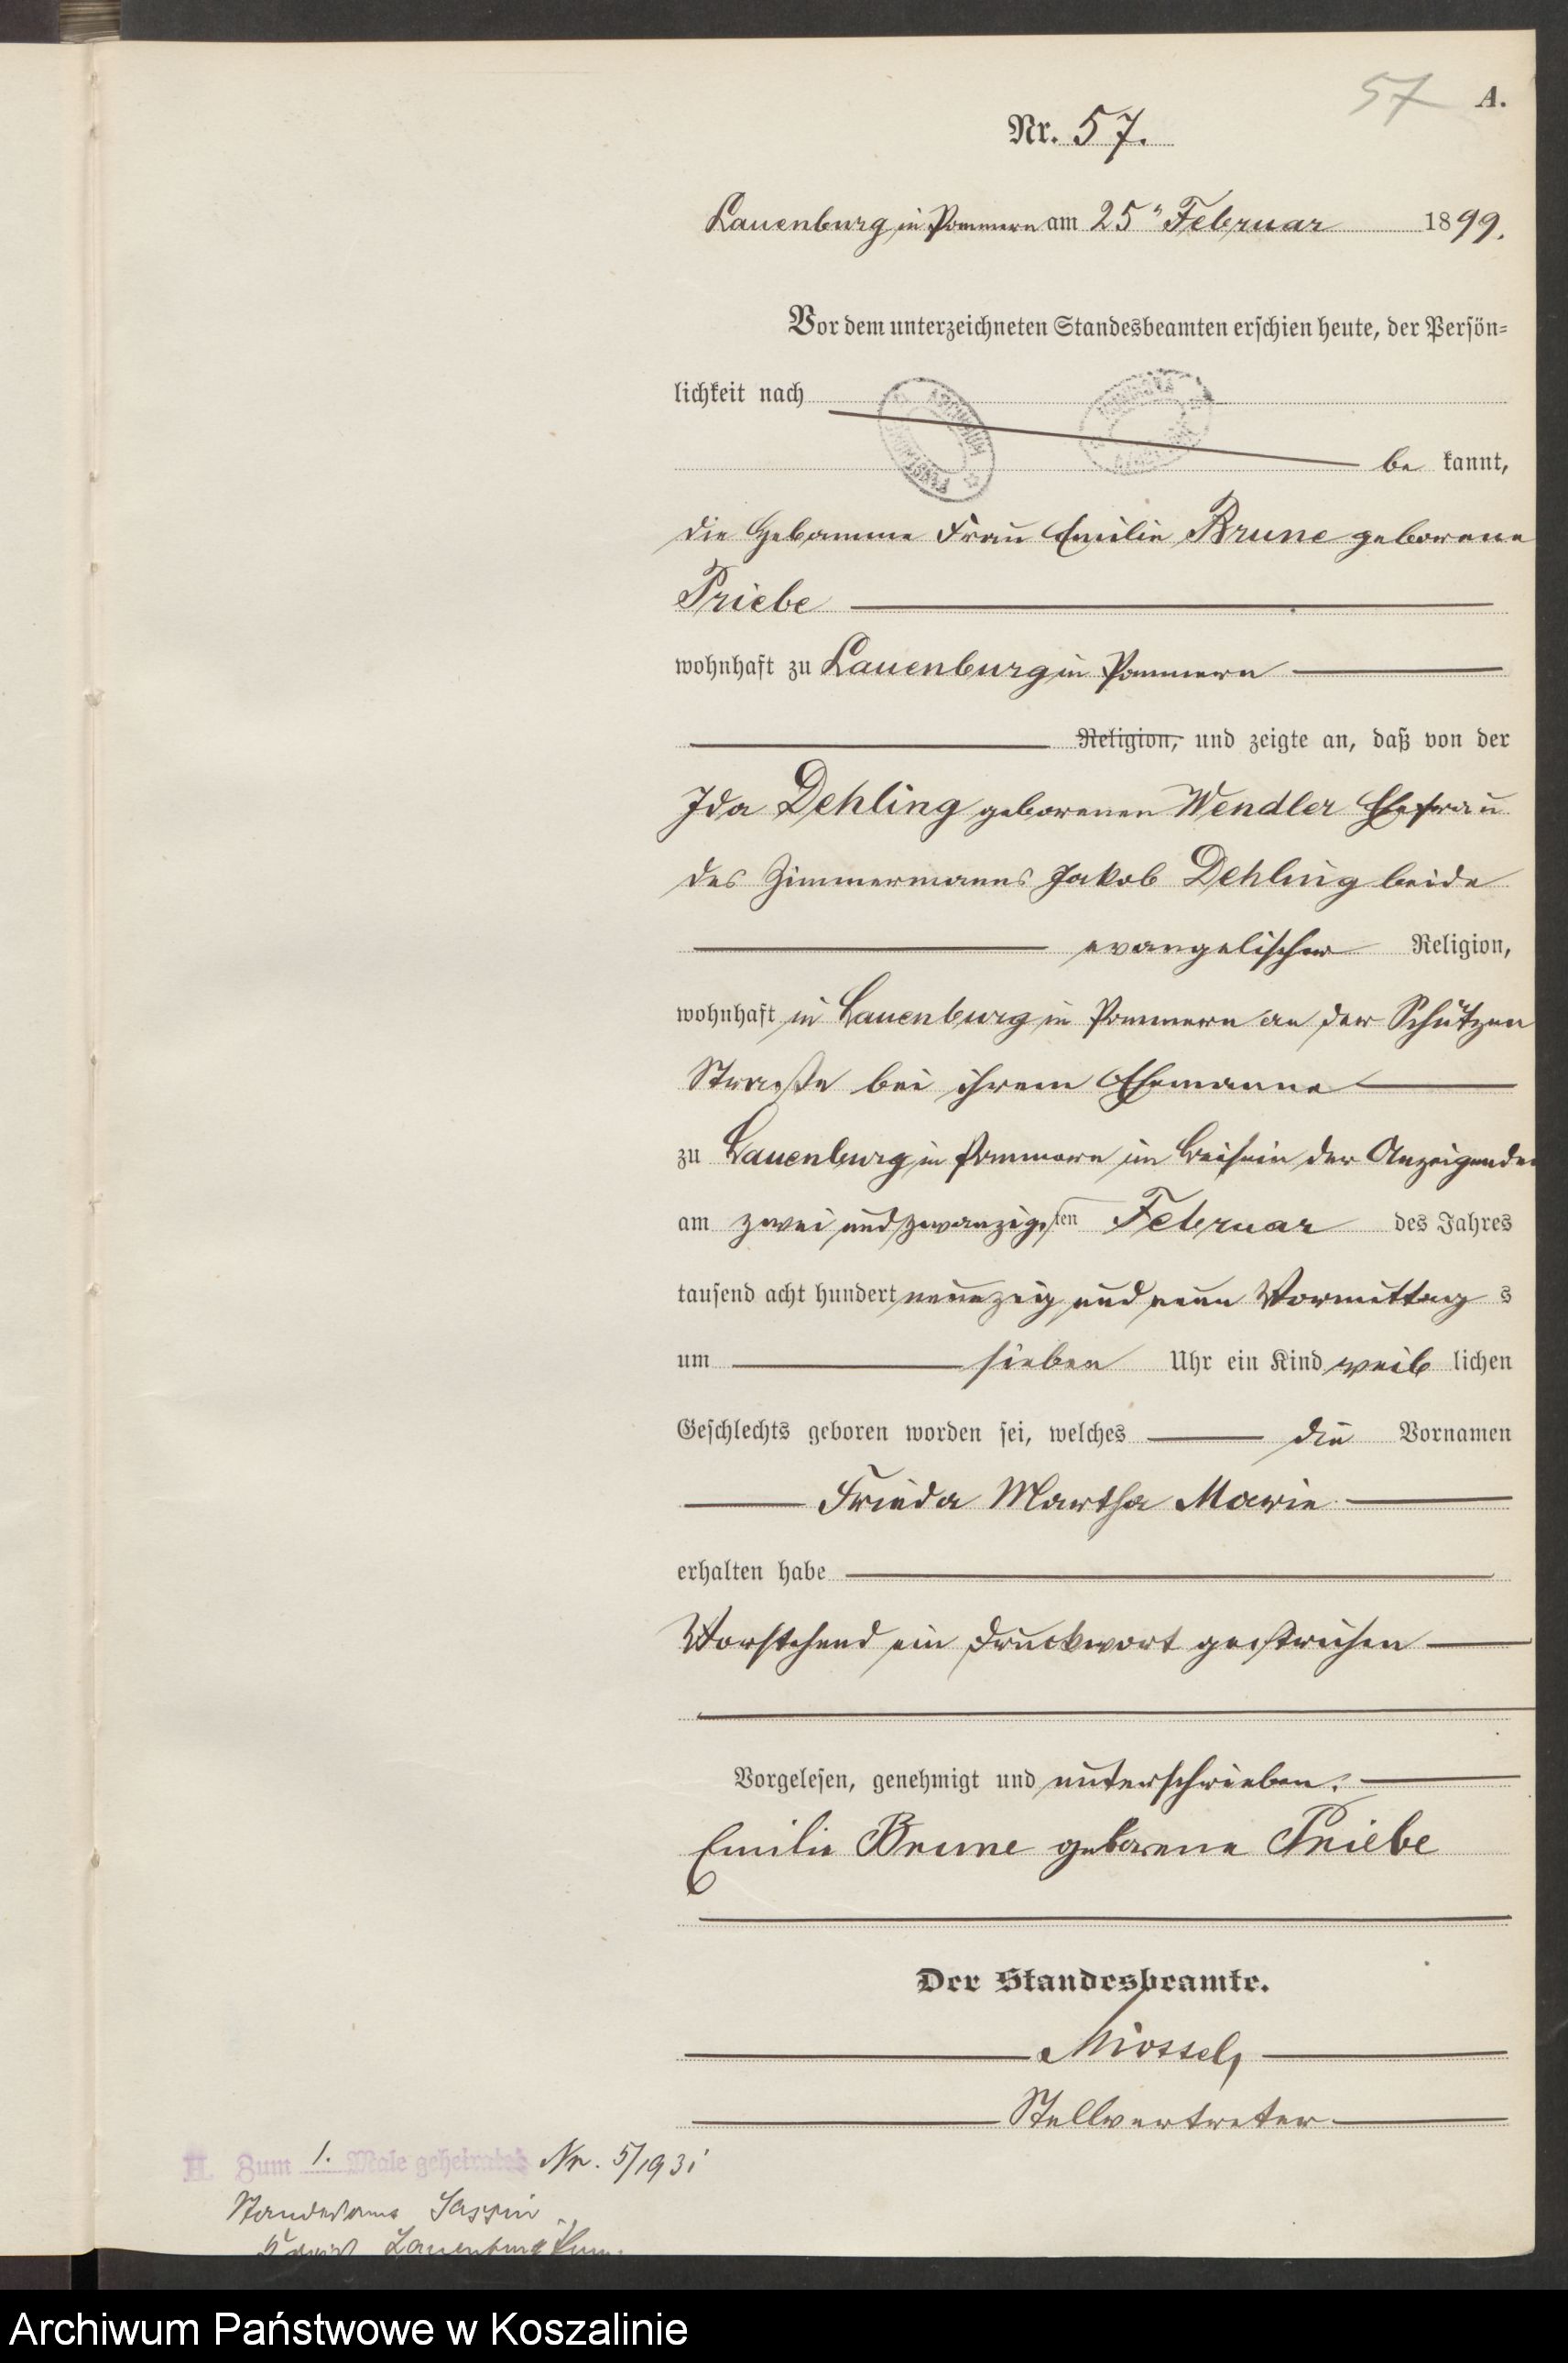 57 A.
Nr. 57.
Lauenburg in Pommern am 25" Februar 1899.
Vor dem unterzeichneten Standesbeamten erschien heute, der Persön-
lichkeit nach
be kannt,
die Hebamme Frau Emilie Brune geborene
Priebe
wohnhaft zu Lauenburg in Pommern
Religion, und zeigte an, daß von der
Ida Dehling geborenen Wendler Ehefrau
des Zimmermanns Jakob Dehling beide
evangelischer Religion,
wohnhaft in Lauenburg in Pommern an der Schützen
Straße bei ihrem Ehemanne
zu Lauenburg in Pommern im Beisein der Anzeigenden
am zwei und zwanzigsten Februar des Jahres
tausend acht hundert neunzig und neun Vormittag s
um sieben Uhr ein Kind weib lichen
Geschlechts geboren worden sei, welches die Vornamen
Frieda Martha Marie
erhalten habe
Vorstehend ein Druckwort gestrichen
Vorgelesen, genehmigt und unterschrieben.
Emilie Brune geborene Priebe
Der Standesbeamte.
Stellvertreter
H. Zum 1. Male geheiratet Nr. 5/1931
Standesamt Sassin
Lauenburg Pom.
Archiwum Państwowe w Koszalinie